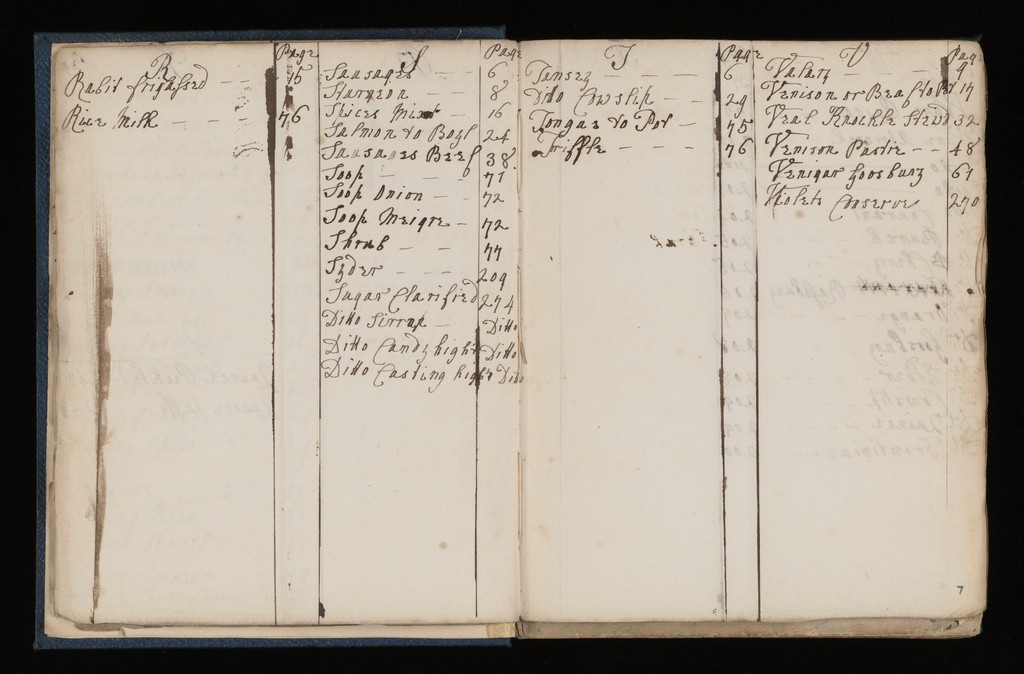 R Page
Rabit frigassed - - - 15
Rice Milk - - - 76
S Page
Sausages - - 6
Sturgeon - - 8
Spices Mixt - 16
Salmon to Boyl - 24
Sausages Beef 38
Soop - - - 71
Soop Onion - - 72
Soop Meigre - 72
Shrub - - 77
Syder - - - 209
Sugar Clarified 274
Ditto Sirrup - Ditto
Ditto Candy hight Ditto
Ditto Casting hight Ditto
T Page
Tansey - - - 6
Ditto Cowslip - - 29
Tongue to Pot - 75
Triffle - - - - 76
V Page
9
Venison or Beaf to Pot 17
Veal Knockle Stewd 32
Venison Pastie - - 48
Venigar Goosbury 61
Violets Conserve 270
7